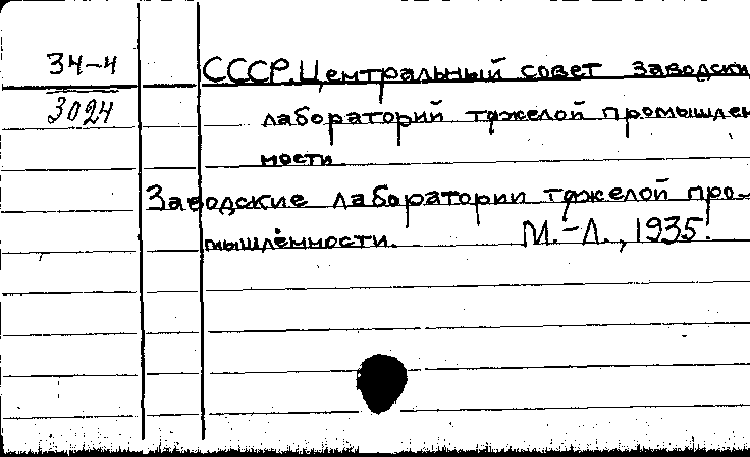 34-4
3024
СССР. Центральный совет заводски
лабораторий тяжелой промышлен
ности
Заводские лаборатории тяжелой про-
мышленности. М.-Л., 1935.